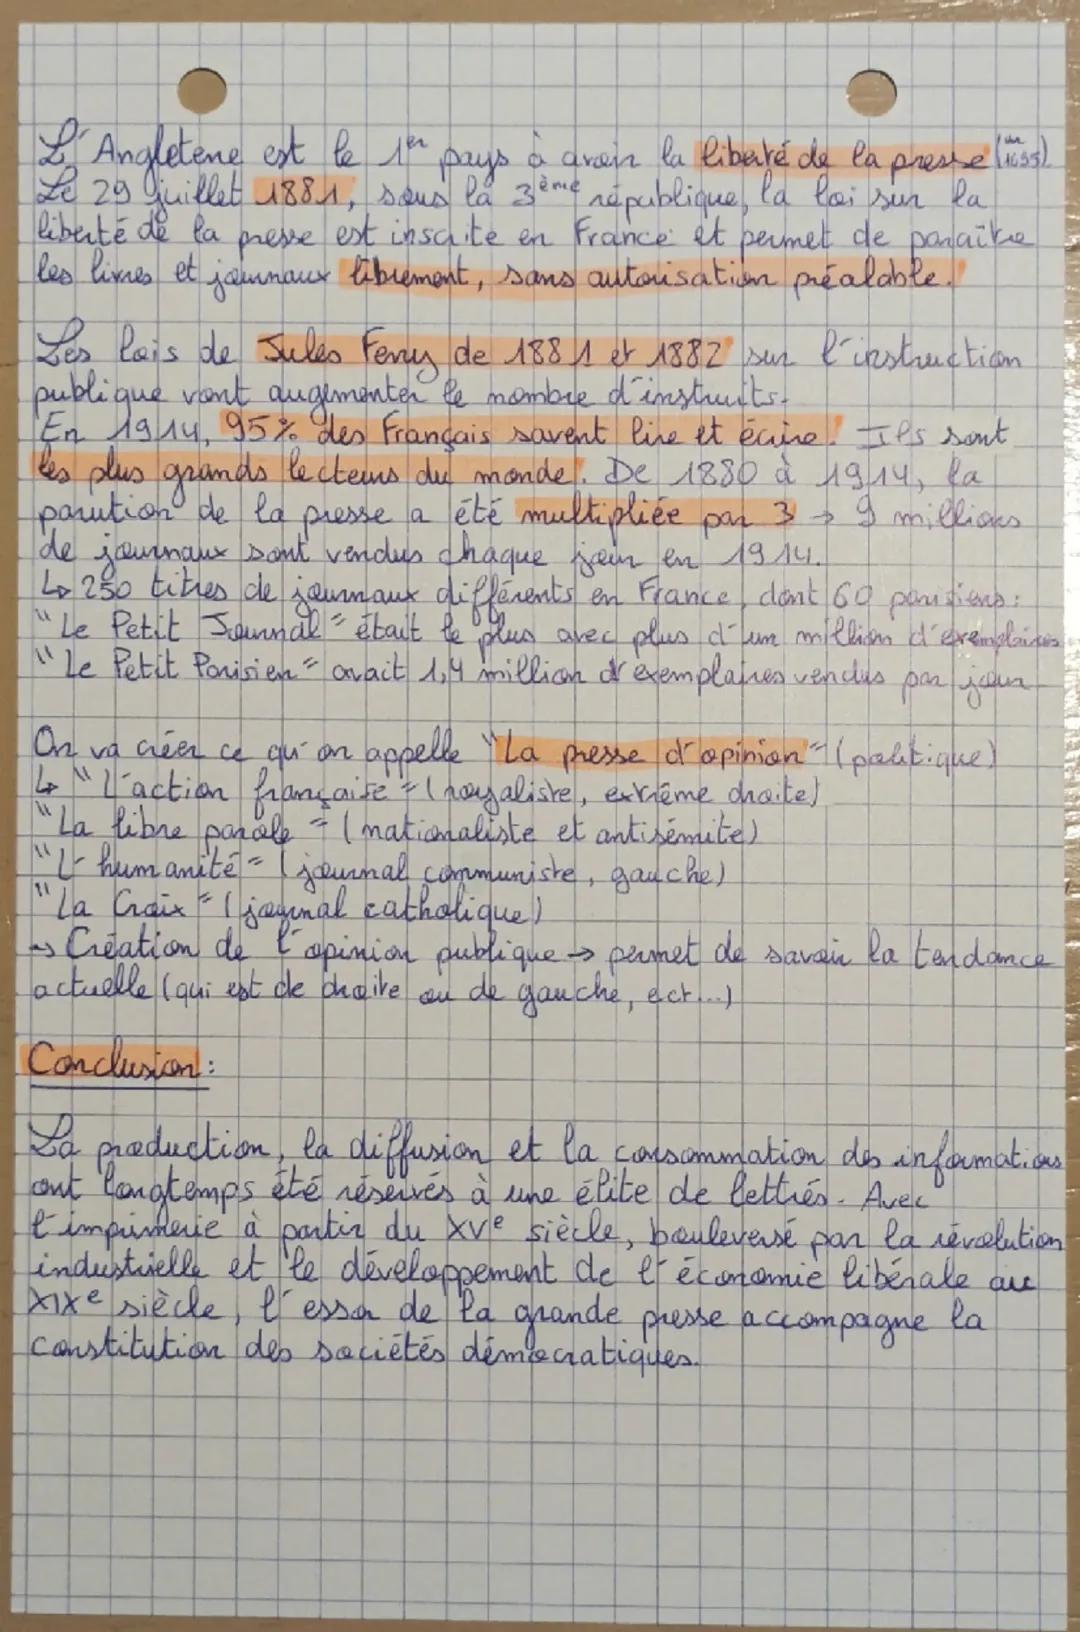 L'Angleterre est le 1er pays à avoir la liberté de la presse (en 1695).
Le 29 juillet 1881, sous la 3ème république, la loi sur la
liberté de la presse est inscrite en France et permet de paraître
les livres et journaux librement, sans autorisation préalable.
Les lois de Jules Ferry de 1881 et 1882 sur l'instruction
publique vont augmenter le nombre d'instruits.
En 1914, 95% des Français savent lire et écrire. Ils sont
les plus grands lecteurs du monde. De 1880 à 1914, la
parution de la presse a été multipliée par 3 → 9 millions
de journaux sont vendus chaque jour en 1914.
↳ 250 titres de journaux différents en France, dont 60 parisiens :
"Le Petit Journal" était le plus avec plus d'un million d'exemplaires
"Le Petit Parisien" avait 1,4 million d'exemplaires vendus par jour
On va créer ce qu'on appelle "La presse d'opinion" (politique)
↳ "L'action française" (royaliste, extrême droite)
"La libre parole" (nationaliste et antisémite)
"L'humanité" (journal communiste, gauche)
"La Croix" (journal catholique)
→ Création de l'opinion publique → permet de savoir la tendance
actuelle (qui est de droite ou de gauche, ect...)
Conclusion :
La production, la diffusion et la consommation des informations
ont longtemps été réservés à une élite de lettrés. Avec
l'imprimerie à partir du XVe siècle, bouleversé par la révolution
industrielle et le développement de l'économie libérale au
XIXe siècle, l'essor de la grande presse accompagne la
constitution des sociétés démocratiques.